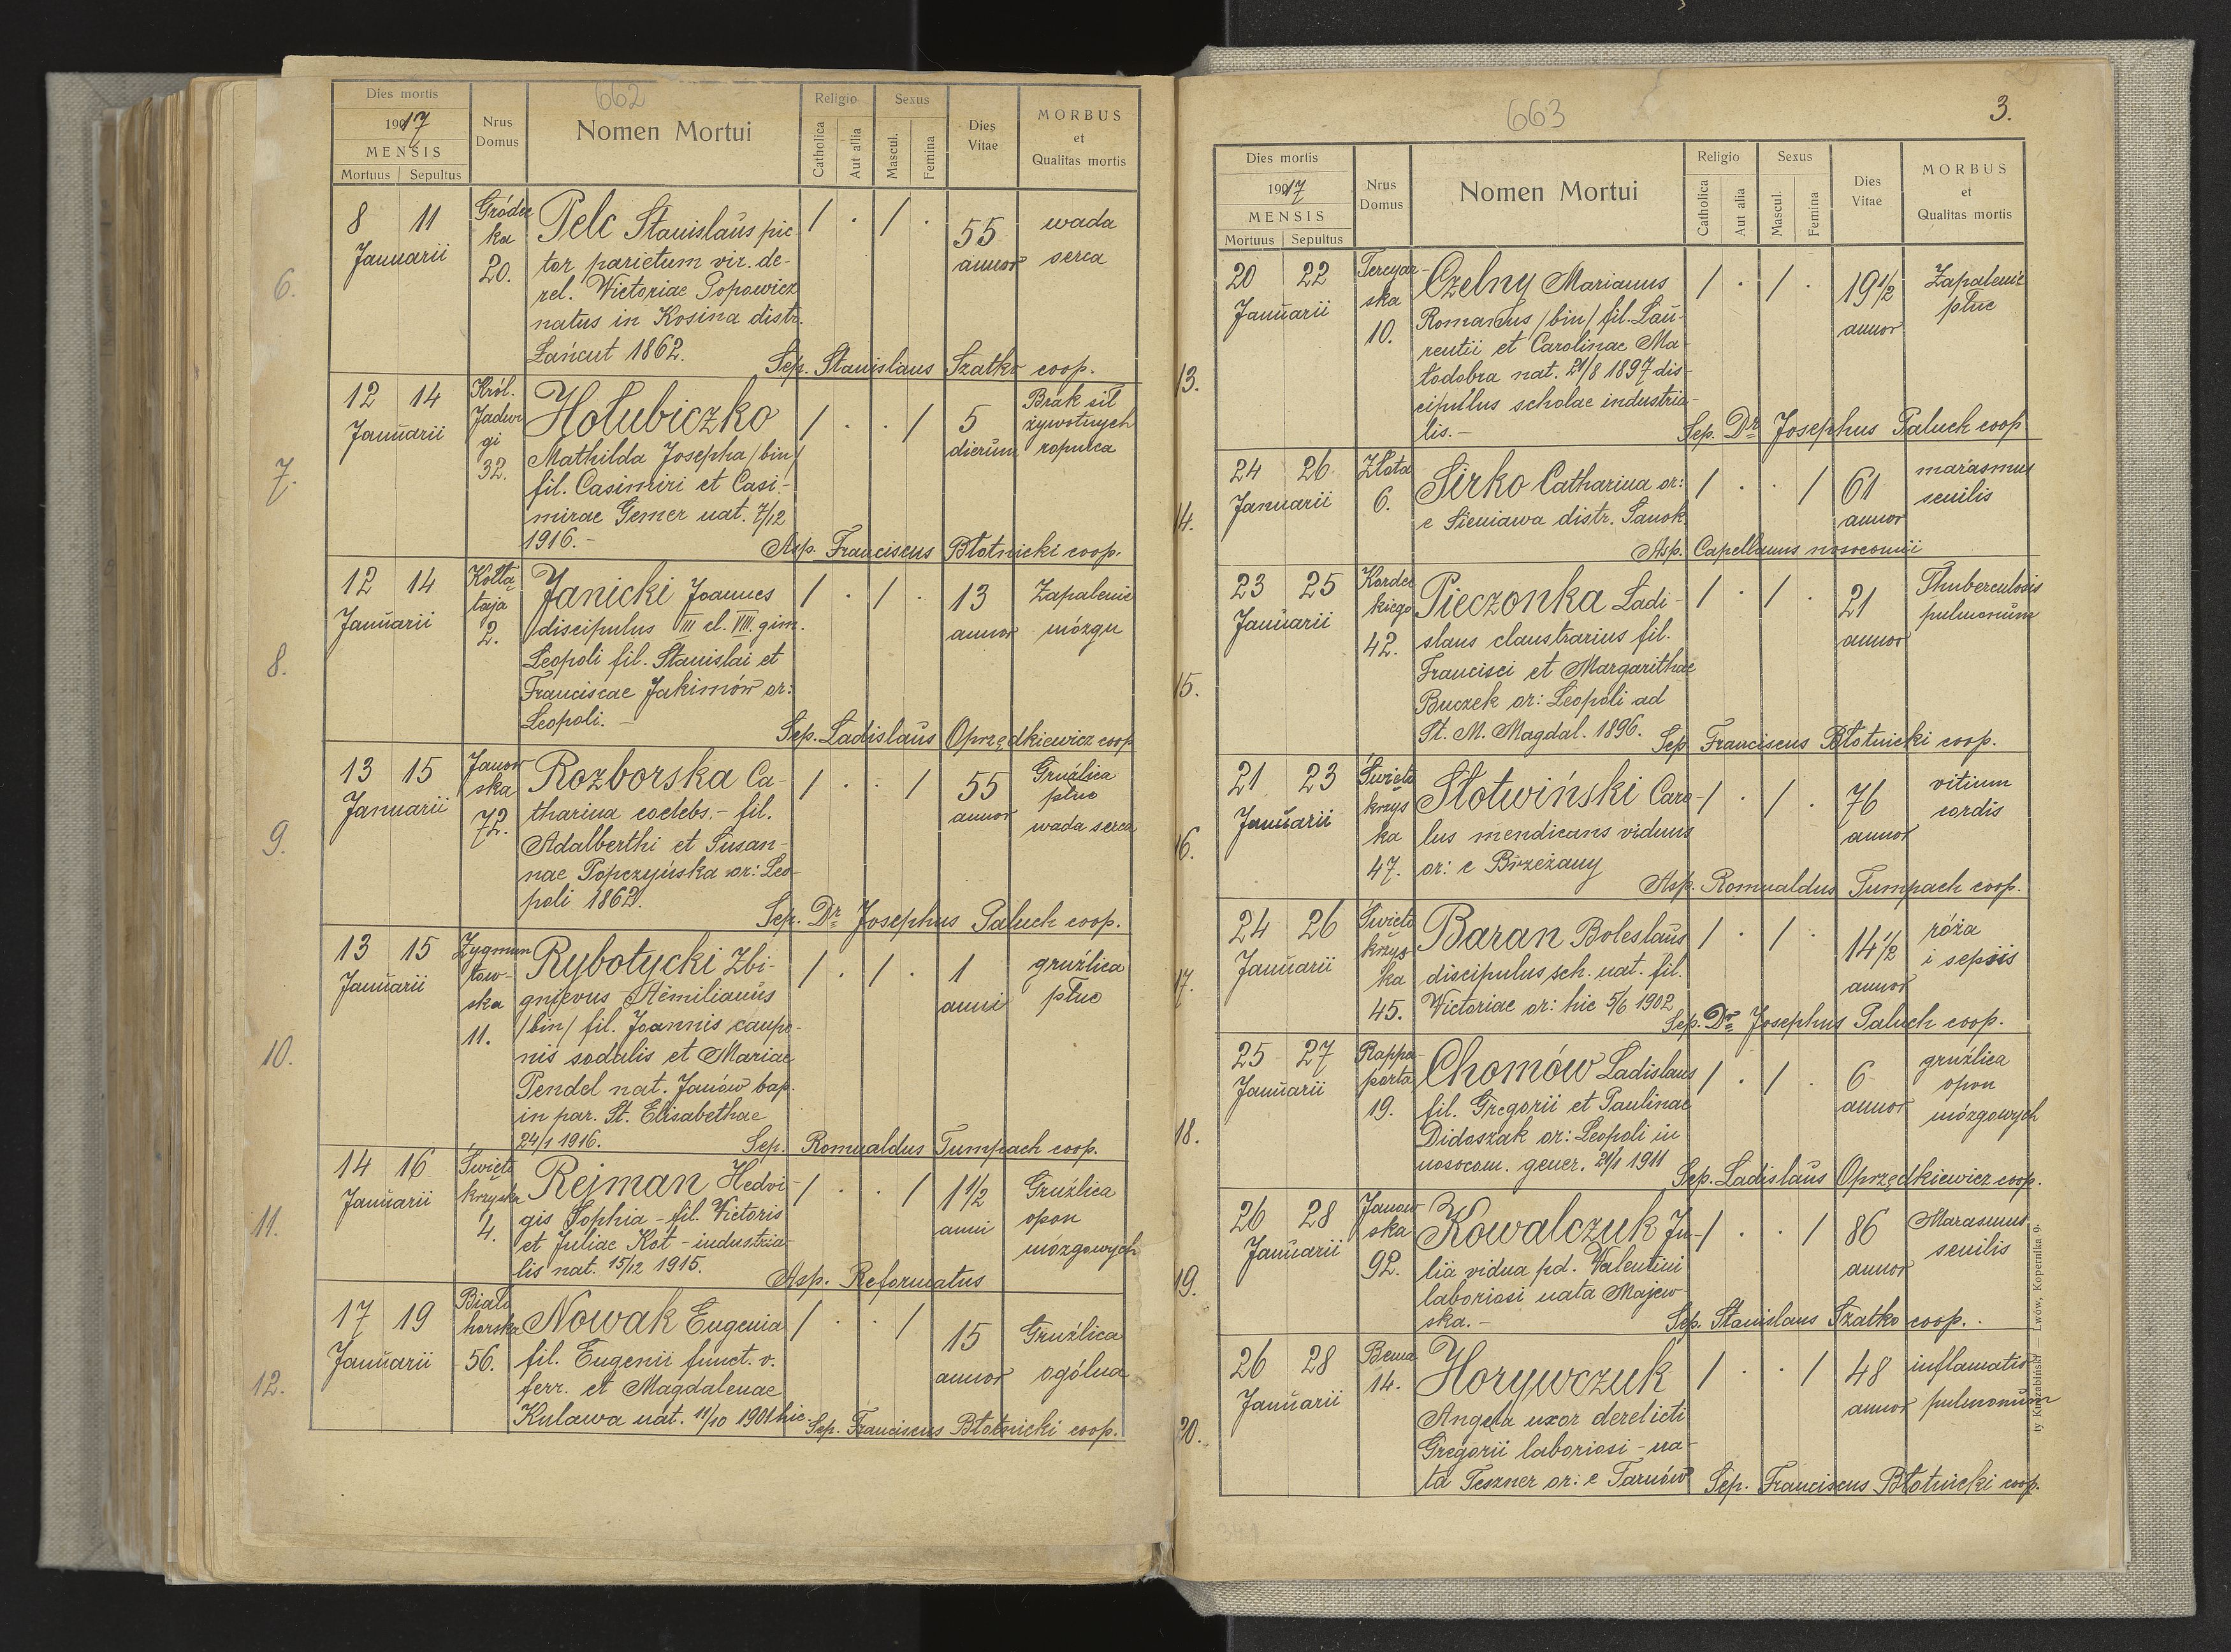 662
Dies mortis
Nrus Domus
Nomen Mortui
Religio
Sexus
Dies Vitae
MORBUS et Qualitas mortis
1917
MENSIS
Mortuus Sepultus
Catholica
Aut alia
Mascul.
Femina
6.
8 11 Januarii
Gródec
ka
20.
Pelc Stanislaus pic
tor parietum vir. de-
rel. Victoriae Popowicz
natus in Kosina distr.
Łańcut 1862.
/ . / .
55
annor
wada
serca
Sep. Stanislaus Szatko coop.
7.
12 14 Januarii
Król.
Jadwi
gi
32.
Hołubiczko
Mathilda Josepha /bin/
fil. Casimiri et Casi-
mirae Gemer nat. 7/12
1916.-
/ . . /
5
dierum
Brak sił
żywotnych
ropnica
Asp. Franciscus Błotnicki coop.
8.
12 14 Januarii
Kołłą
taja
2.
Janicki Joannes
discipulus III cl. VIII. gim.
Leopoli fil. Stanislai et
Franciscae Jakimów or:
Leopoli. -
/ . / .
13
annor
Zapalenie
mózgu
Sep. Ladislaus Oprzędkiewicz coop
9.
13 15 Januarii
Janow
ska
72.
Rozborska Ca-
tharina coelebs. - fil.
Adalberthi et Susan-
nae Popczyńska or: Leo-
poli 1862.
/ . . /
55
annor
Gruźlica
płuc
wada serca
Sep. Dr Josephus Paluch coop.
10.
13 15 Januarii
Zygmun
tow-
ska
11.
Rybotycki Zbi-
gnievus Aemilianus
/bin/ fil. Joannis caupo-
nis sodalis et Mariae
Pendel nat. Janów bap.
in par. St. Elisabethae
24/1 1916.
/ . / .
1
anni
gruźlica
płuc
Sep. Romualdus Tumpach coop.
11.
14 16 Januarii
Święto
krzyska
4.
Rejman Hedvi-
gis Sophia - fil. Victoris
et Juliae Kot - industria-
lis nat. 15/12 1915.
/ . . /
1 1/2
anni
Gruźlica
opon
mózgowych
Asp. Reformatus
12.
17 19 Januarii
Biało
horska
56.
Nowak Eugenia
fil. Eugenii funct. v.
ferr. et Magdalenae
Kulawa nat. 11/10 1901 hic.
/ . . /
15
annor
Gruźlica
ogólna
Sep. Franciscus Błotnicki coop.
663
3.
Dies mortis
Nrus Domus
Nomen Mortui
Religio
Sexus
Dies Vitae
MORBUS et Qualitas mortis
1917
MENSIS
Mortuus Sepultus
Catholica
Aut alia
Mascul.
Femina
13.
20 22 Januarii
Tercyar-
ska
10.
Czelny Marianus
Romanus /bin/ fil. Lau-
rentii et Carolinae Ma-
łodobra nat. 21/8 1897 dis-
cipulus scholae industria-
lis. -
/ . / .
19 1/2
annor
Zapalenie
płuc
Sep. Dr Josephus Paluch coop
14.
24 26 Januarii
Złota
6.
Sirko Catharina or:
e Sieniawa distr. Sanok
/ . . /
61
annor
marasmus
senilis
Asp. Capellanus nosocomii
15.
23 25 Januarii
Kordec
kiego
42.
Pieczonka Ladi-
slaus claustrarius fil.
Francisci et Margarithae
Buczek or: Leopoli ad
St. M. Magdal. 1896.
/ . / .
21
annor
Thuberculosis
pulmonum
Sep. Franciscus Błotnicki coop.
16.
21 23 Januarii
Święto
krzys
ka
47.
Słotwiński Caro-
lus mendicans viduus
or: e Brzeżany
/ . / .
76
annor
vitium
cordis
Asp. Romualdus Tumpach coop.
17.
24 26 Januarii
Święto
krzys-
ka
45.
Baran Boleslaus
discipulus sch. nat. fil.
Victoriae or: hic 5/6 1902
/ . / .
14 1/2
annor
róża
i sepsis
Sep. Dr Josephus Paluch coop.
18.
25 27 Januarii
Rappa-
porta
19.
Chomów Ladislaus
fil. Gregorii et Paulinae
Didoszak or: Leopoli in
nosocom. gener. 21/1 1911
/ . / .
6
annor
gruźlica
opon
mózgowych
Sep. Ladislaus Oprzędkiewicz coop.
19.
26 28 Januarii
Janow
ska
92.
Kowalczuk Ju-
lia vidua pd. Valentini
laboriosi nata Majew-
ska. -
/ . . /
86
annor
Marasmus
senilis
Sep. Stanislaus Szatko coop.
20.
26 28 Januarii
Bema
14.
Horywczuk
Angela uxor derelicti
Gregorii laboriosi - na-
ta Teszner or: e Tarnów
/ . . /
48
annor
inflamatio
pulmonum
Sep. Franciscus Błotnicki coop.
Lwów, Kopernika 9.